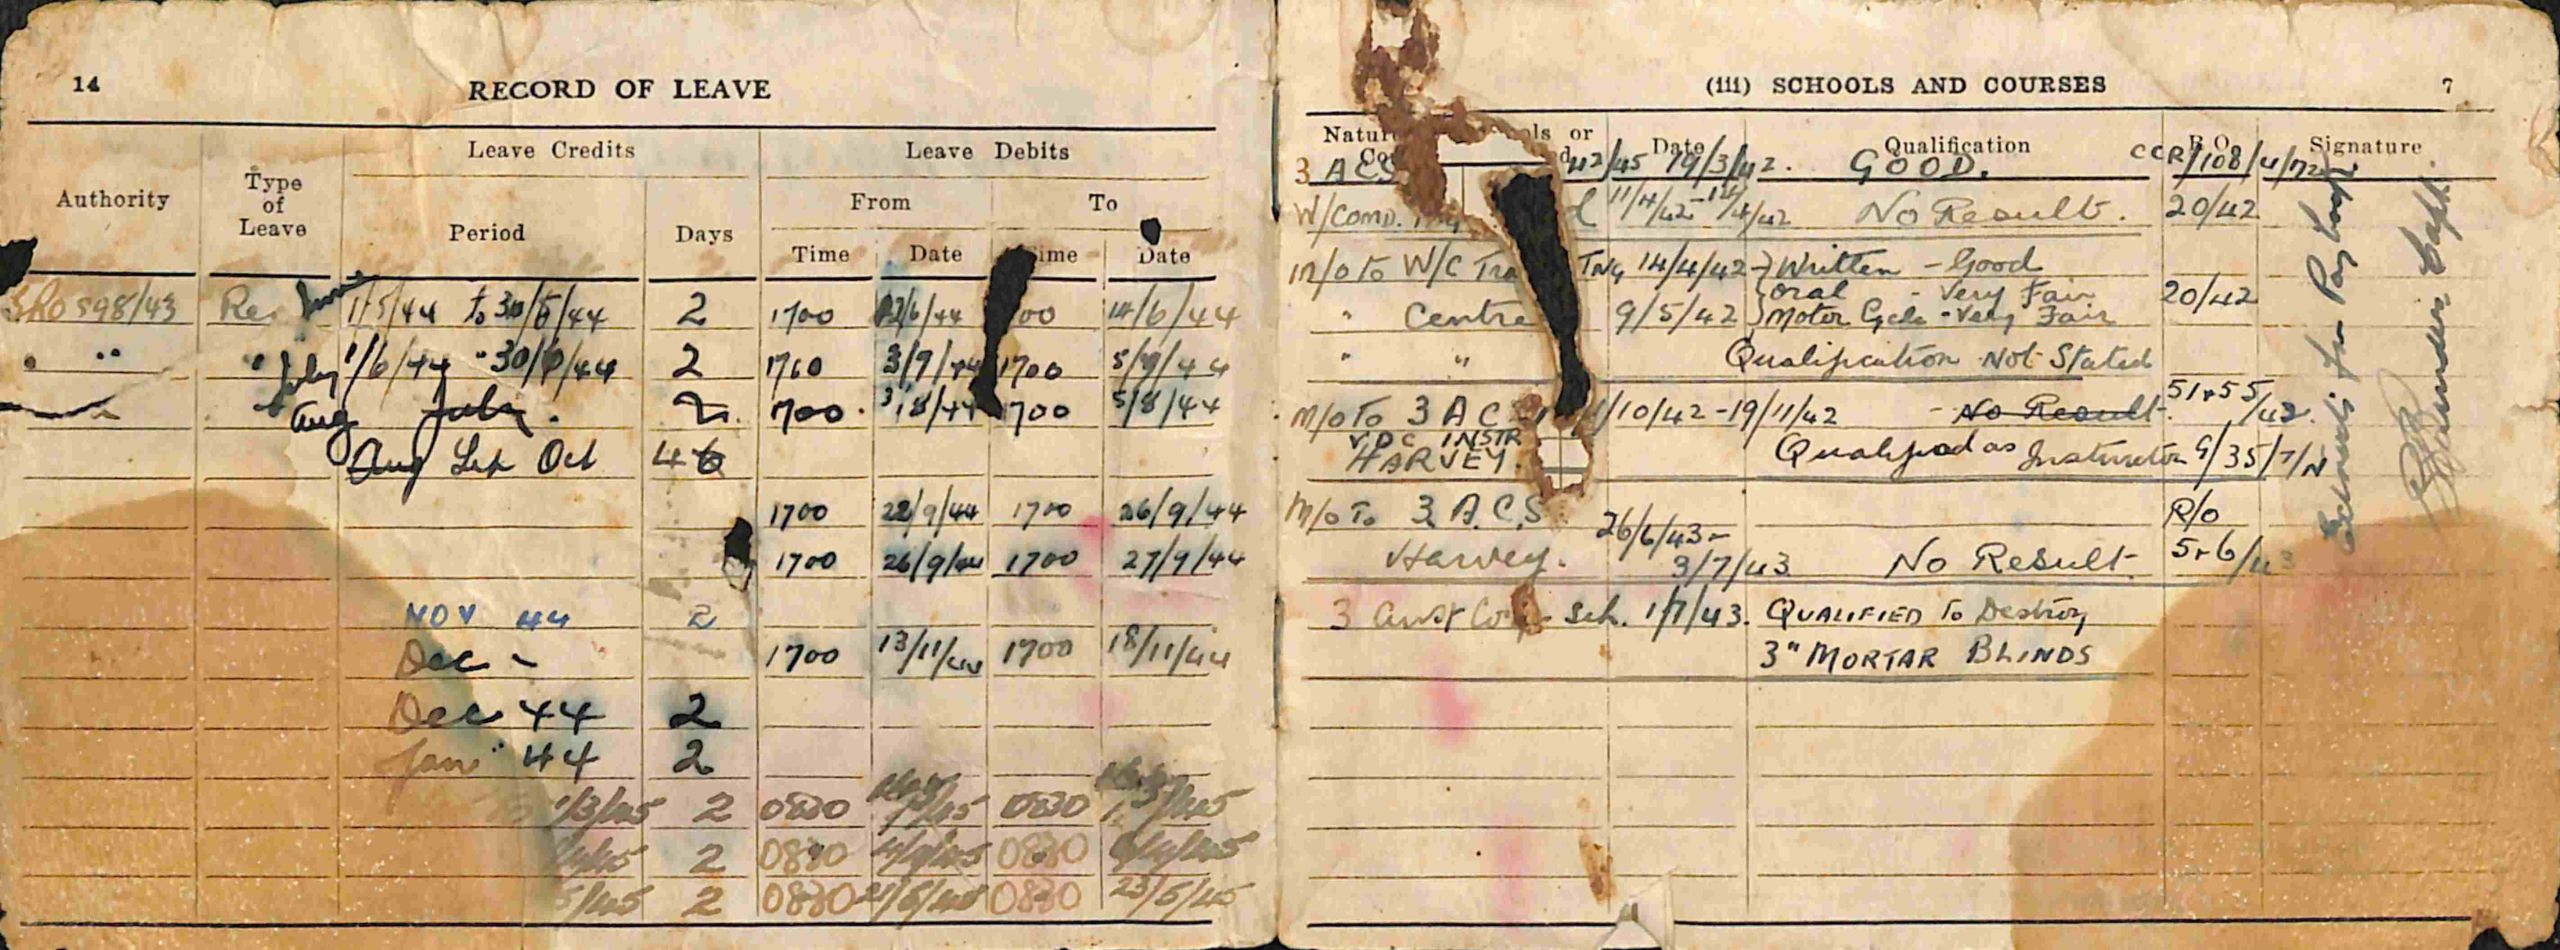 14
RECORD OF LEAVE
Leave Credits Leave Debits
Authority Type of Leave Period Days From To
Time Date Time Date
598/43 Rec June 1/5/44 to 30/5/44 2 1700 12/6/44 00 14/6/44
" " " July 1/6/44 " 30/6/44 2 1700 3/7/44 1700 5/7/44
" Aug July. 2 1700 3/8/44 1700 5/8/44
Aug Sep Oct 4 6
1700 22/9/44 1700 26/9/44
1700 26/9/44 1700 27/9/44
NOV 44 2
Dec - 1700 13/11/44 1700 18/11/44
Dec 44 2
Jan 44 2
1/3/45 2 0830 0830
2 0830 0830
5/45 2 0830 21/5/45 0830 23/5/45
(iii) SCHOOLS AND COURSES
7
Natur ols or Date Qualification R.O. Signature
3 ACS 42/45 19/3/42. GOOD. CCR/108/4/72
W/Comd. 11/4/42-14/4/42 No Result. 20/42
M/O to W/C Tra TNG 14/4/42- } Written - Good
Oral - Very Fair
" Centre 9/5/42 } Motor Cycle - Very Fair 20/42
" " Qualification Not Stated
M/O To 3 ACS /10/42 -19/11/42 - No Result. 51+55/42.
VDC INSTR
HARVEY. Qualified as Instructor 9/35/7/N
M/O To 3 A.C.S 26/6/43- R/O
Harvey. 3/7/43 No Result 5+6/43
3 Aust Sch. 1/7/43. QUALIFIED To Destroy
3" MORTAR BLINDS
Extracts from Pay book
Capt.